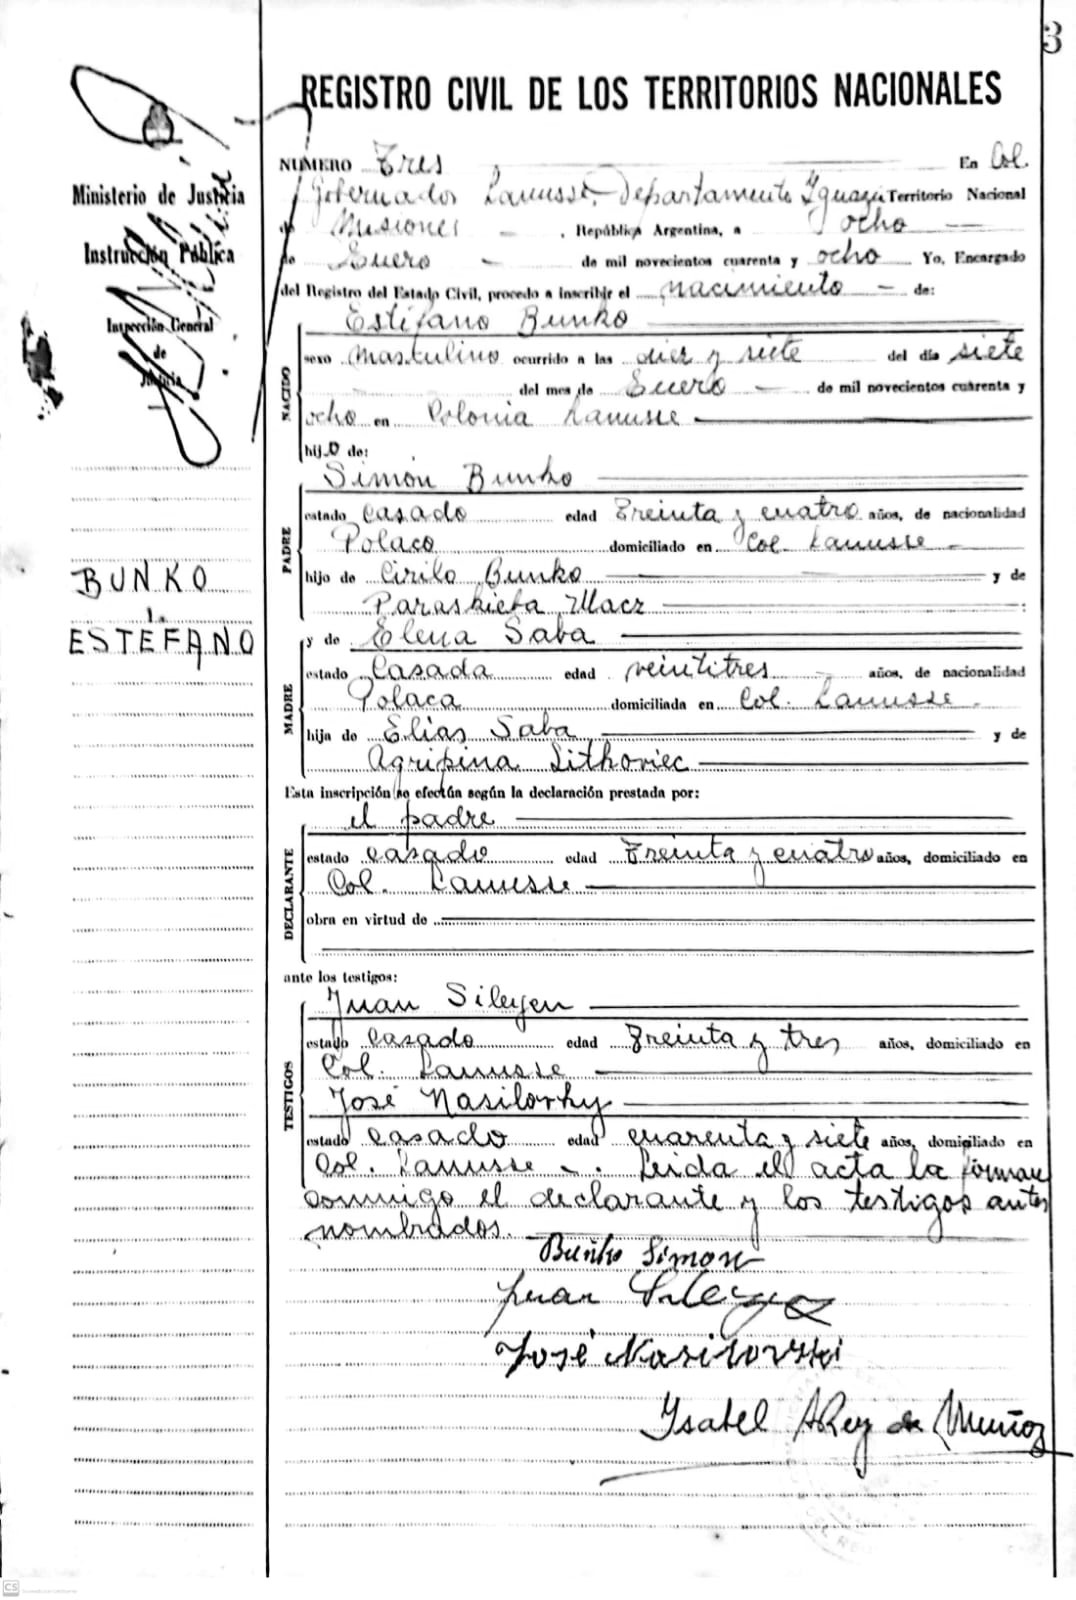 3
REGISTRO CIVIL DE LOS TERRITORIOS NACIONALES
Ministerio de Justicia
Instrucción Pública
Inspección General
de
Justicia
BUNKO
ESTEFANO
NUMERO Tres En Col.
Gobernador Lanusse, Departamento Iguazú Territorio Nacional
de Misiones - , República Argentina, a ocho
de Enero - de mil novecientos cuarenta y ocho Yo, Encargado
del Registro del Estado Civil, procedo a inscribir el nacimiento - de:
NACIDO
Estéfano Bunko
sexo masculino ocurrido a las diez y siete del día siete
del mes de Enero - de mil novecientos cuarenta y
ocho en Colonia Lanusse
hijo de:
PADRE
Simón Bunko
estado casado edad Treinta y cuatro años, de nacionalidad
Polaco domiciliado en Col. Lanusse -
hijo de Cirilo Bunko y de
Paraskieta Macz
MADRE
y de Elena Saba
estado Casada edad veintitres - años, de nacionalidad
Polaca domiciliada en Col. Lanusse.
hija de Elias Saba y de
Agripina Sitkoviec
Esta inscripción se efectúa según la declaración prestada por:
DECLARANTE
el padre
estado casado edad Treinta y cuatro años, domiciliado en
Col. Lanusse
obra en virtud de
ante los testigos:
TESTIGOS
Juan Sileyen
estado casado edad Treinta y tres años, domiciliado en
Col. Lanusse
José Nasilovky
estado casado edad cuarenta y siete años, domiciliado en
Col. Lanusse - . Leida el acta la firman
conmigo el declarante y los testigos antes
nombrados.
Buńko Simon
Juan
José Nasilovski
Ysabel A Rey de Muñoz
CS